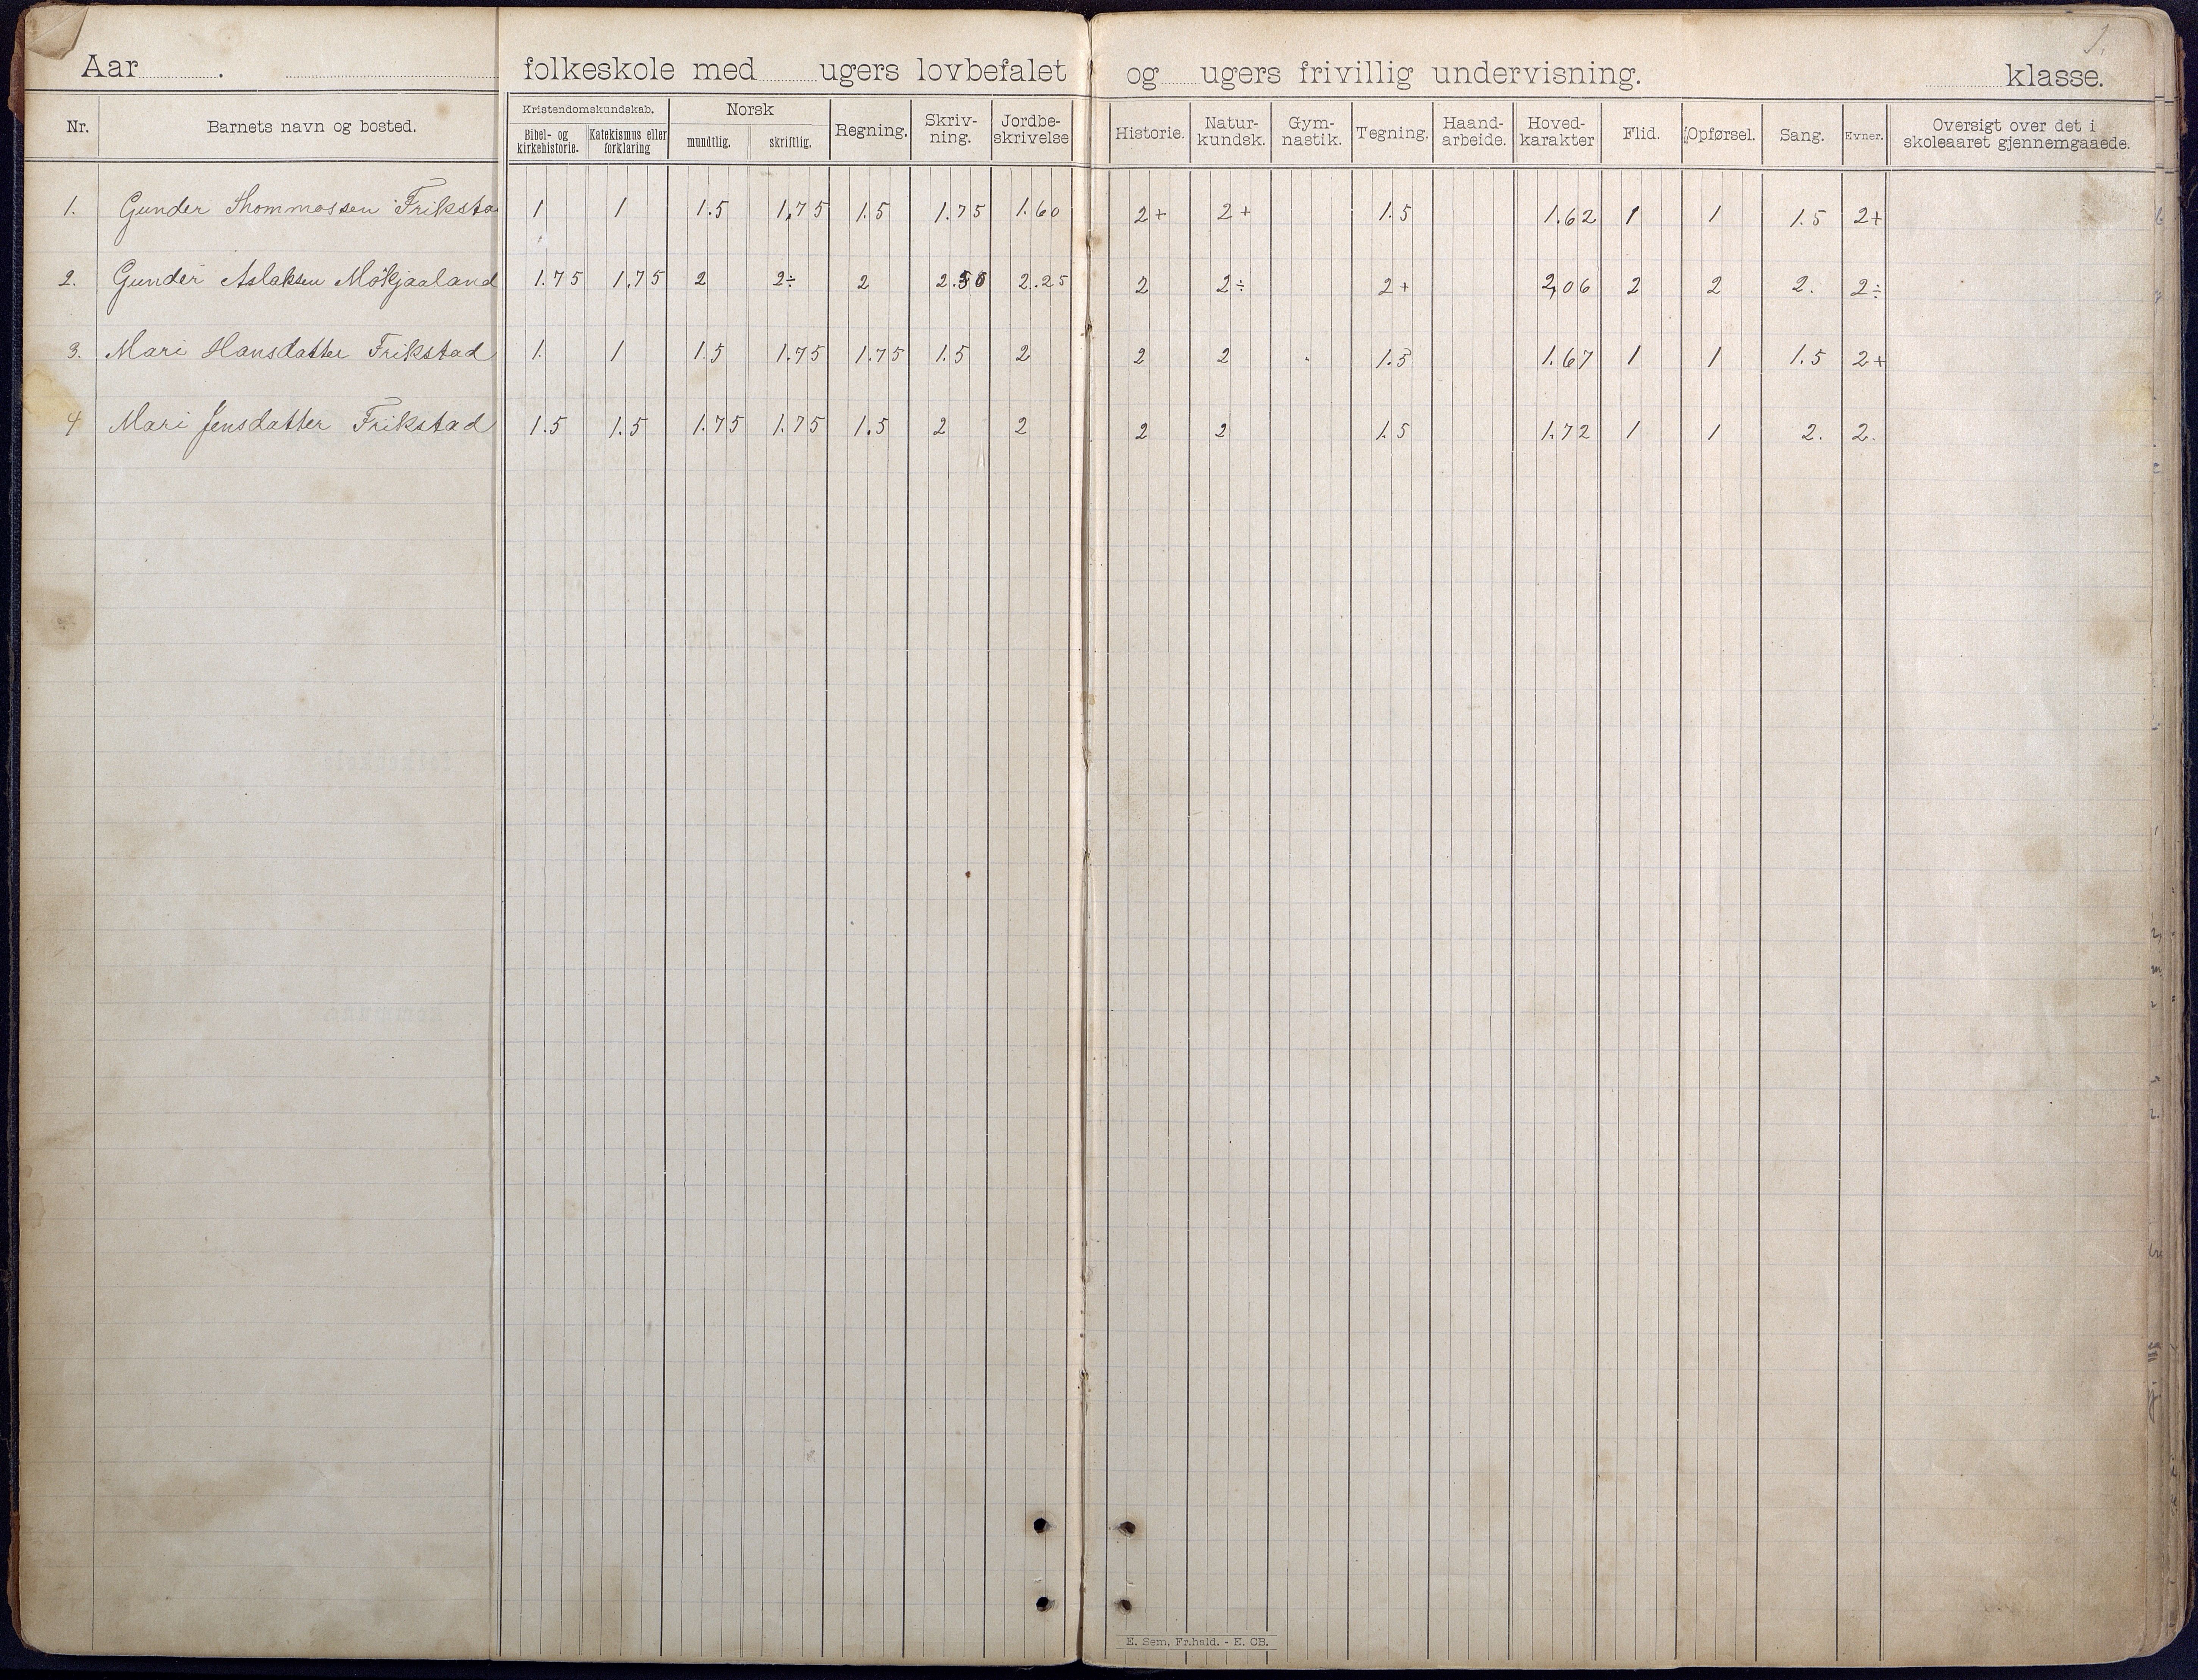 1.
Aar . folkeskole med ugers lovbefalet og ugers frivillig undervisning. klasse.
Nr. Barnets navn og bosted. Kristendomskundskab. Bibel- og kirkehistorie. Katekismus eller forklaring Norsk mundtlig. skriftlig. Regning. Skriv-ning. Jordbe-skrivelse Historie. Natur-kundsk. Gym-nastik. Tegning. Haand-arbeide. Hoved-karakter Flid. Opførsel. Sang. Evner. Oversigt over det i skoleaaret gjennemgaaede.
1. Gunder Thommassen Friksta 1 1 1.5 1,75 1.5 1.75 1.60 2+ 2+ 1.5 1.62 1 1 1.5 2+
2. Gunder Aslaksen Mökjaaland 1.75 1.75 2 2÷ 2 2.50 2.25 2 2÷ 2+ 2,06 2 2 2. 2÷
3. Mari Hansdatter Frikstad 1. 1 1.5 1.75 1.75 1.5 2 2 2 1.5 1.67 1 1 1.5 2+
4 Mari Jensdatter Frikstad 1.5 1.5 1.75 1.75 1.5 2 2 2 2 1.5 1.72 1 1 2. 2.
E. Sem, Fr.hald. - E. CB.